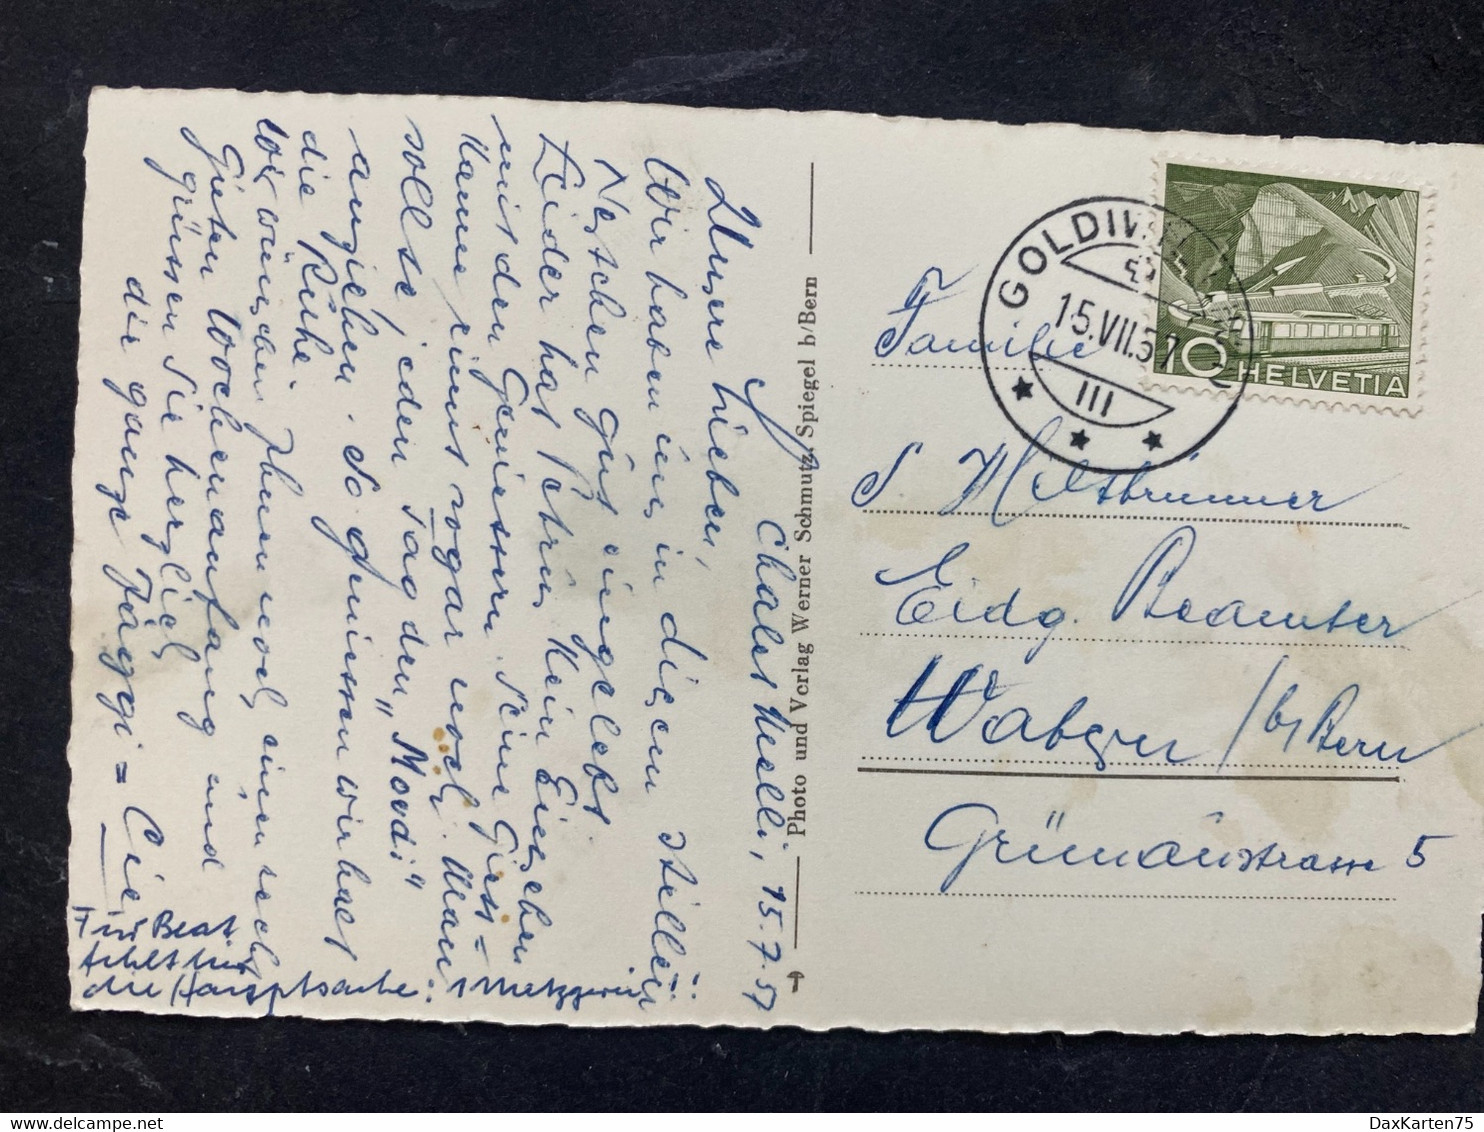 Chalet Uesli, 15.7.57
Unsere Lieben,
Wir haben uns in diesem stillen
Nestchen gut eingelebt
Leider hat Petrus kein Einsehen
mit den Geniessern. Seine Giess=
kanne rinnt sogar noch. Man
sollte jeden Tag den "Mordi"
anziehen. So geniessen wir halt
die Ruhe.
Wir wünschen Ihnen noch einen recht
guten Wochenanfang und
grüssen Sie herzlich
die ganze Jäggi=Cie
Für Beat
fehlt hier
die Hauptsache: 1 Metzgerei!!
Photo und Verlag Werner Schmutz, Spiegel b/Bern
GOLDIWIL
15.VII.57
III
10
HELVETIA
Familie
Eidg. Beamter
Wabern / b/ Bern
Grünaustrasse 5
DaxKarten75